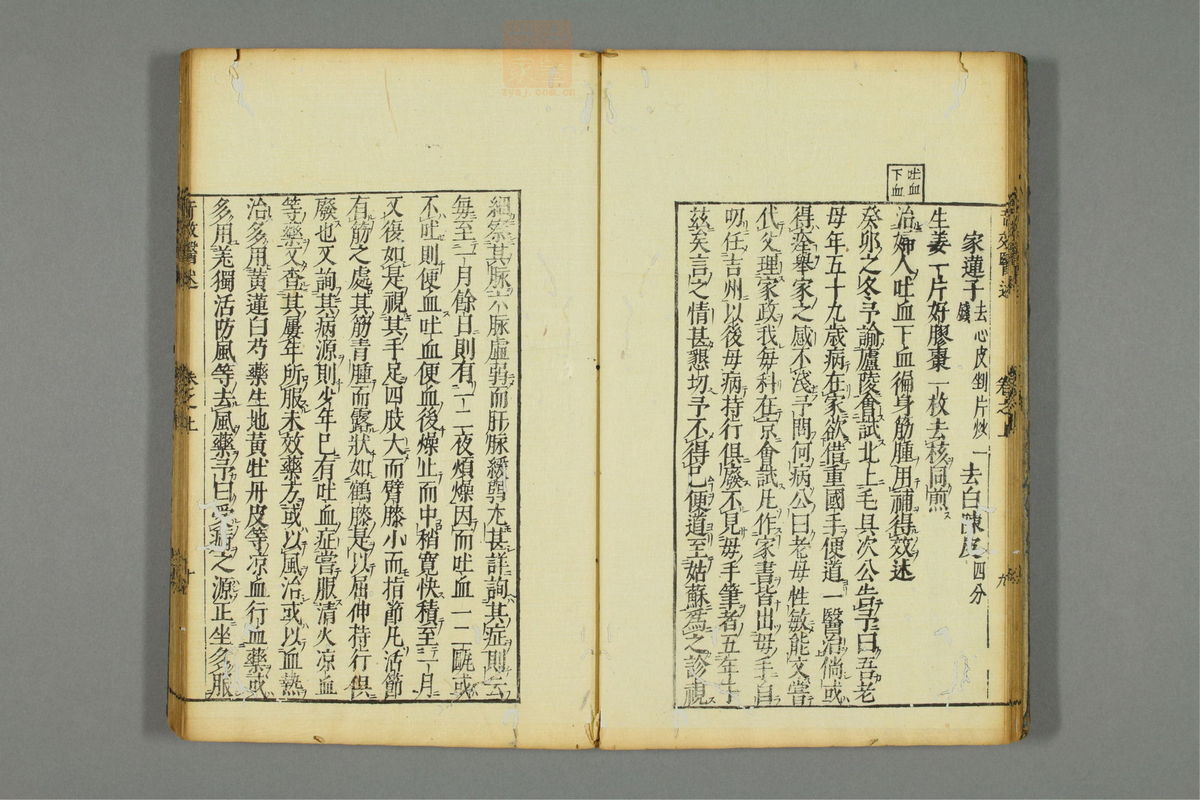 吐血
下血
家蓮子去心皮剉片炒一錢 去白陳皮四分
生姜一片好膠棗一枚去核同煎
治婦人吐血下血徧身筋腫用補得效述
癸卯之冬予諭廬陵會試北上毛具次公告予曰吾老
母年五十九歲病在家欲借重國手便道一醫治倘或
得痊舉家之感不淺予問何病公曰老母性敏能文嘗
代父理家政我每科在京會試凡作家書皆出母手自
叨任吉州以後母病持行俱廢不見母手筆者五年于
兹矣言之情甚懇切予不得已便道至姑蘇為之診視
細察其脉六脉虛弱而肝脉緩弱尤甚詳詢其症則云
每至一月餘日則有一二夜煩燥因而吐血一二甌或
不吐則便血吐血便血後燥止而中稍寬快積至一月
又復如是視其手足四肢大而臂膝小而指節凡活節
有筋之處其筋青腫而露狀如鶴膝是以屈伸持行俱
廢也又詢其病源則少年已有吐血症嘗服清火凉血
等藥又查其屢年所服未效藥方或以風治或以血熱
治多用黃蓮白芍藥生地黃牡丹皮等凉血行血藥或
多用羌獨活防風等去風藥予曰受病之源正坐多服
奇效醫述
卷之上
九
奇效醫述
卷之上
十
zysj.com.cn